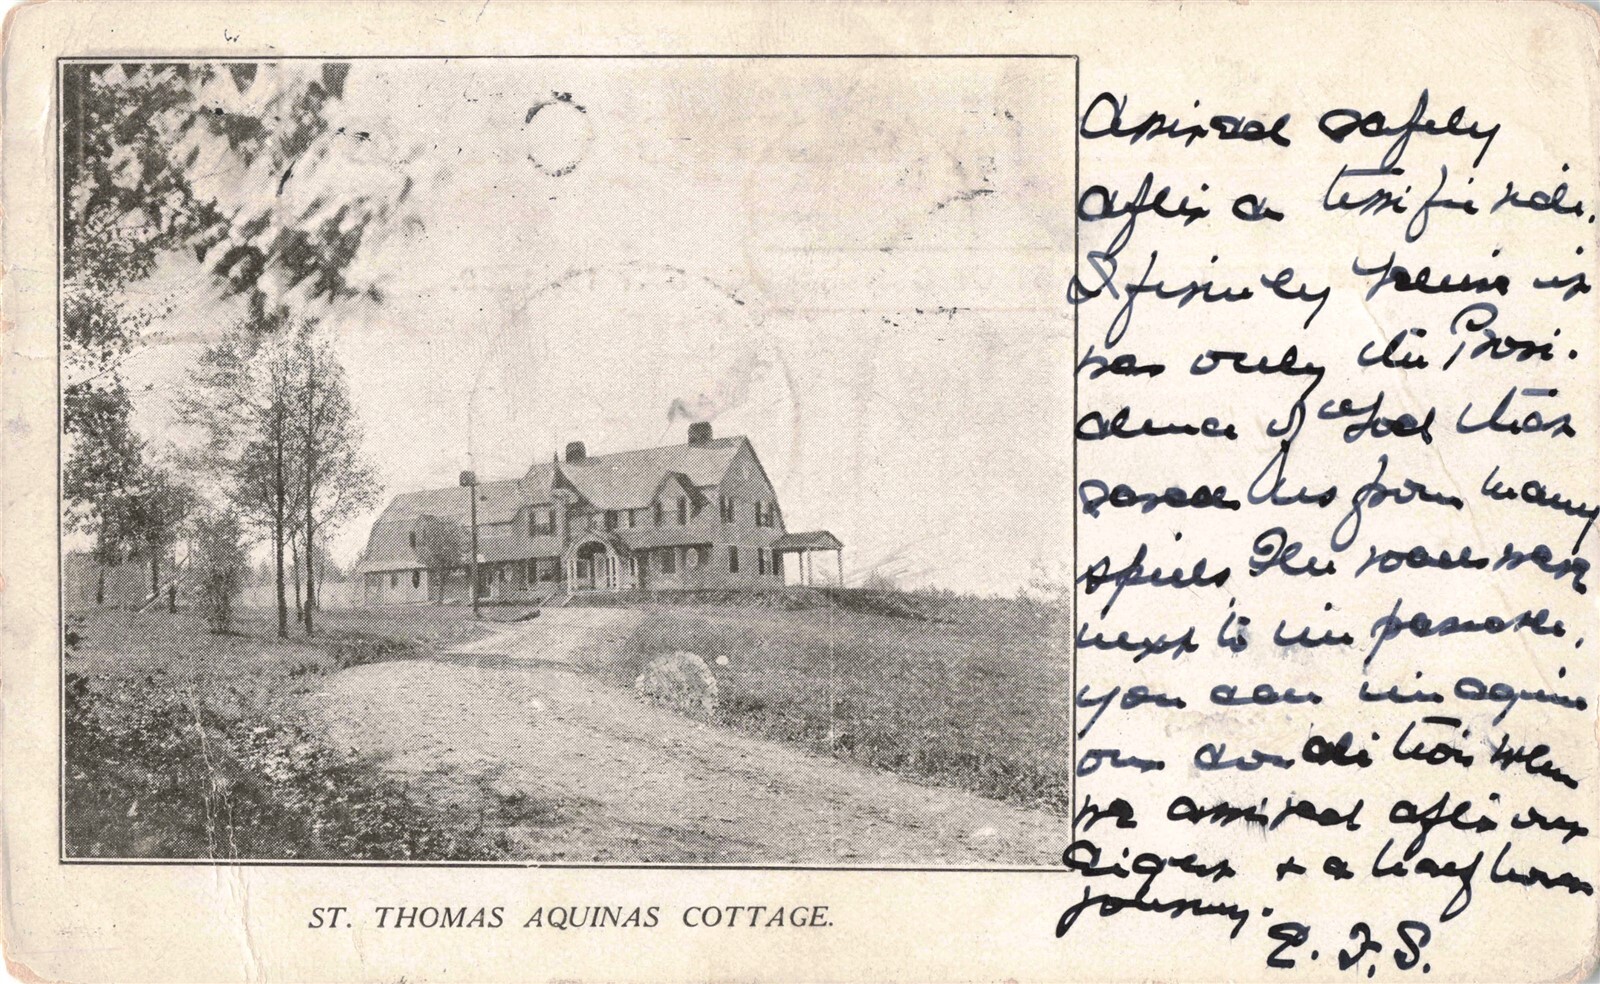 Arrived safely
after a terrific ride.
I firmly believe it
was only the Provi-
dence of God that
saved us from many
spills The roads were
next to im passable.
you can im agine
our condition when
we arrived after our
eight + a half hour
journey.
E. F. S.
ST. THOMAS AQUINAS COTTAGE.